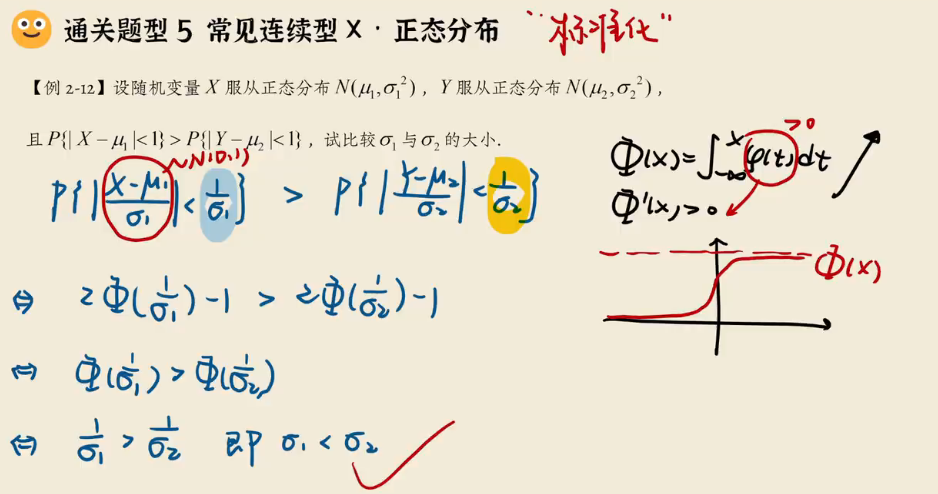 通关题型 5 常见连续型 X · 正态分布 “标准化”
【例 2-12】设随机变量 X 服从正态分布 N(μ₁,σ₁²)，Y 服从正态分布 N(μ₂,σ₂²)，
且 P{| X − μ₁ |<1} > P{| Y − μ₂ |<1}，试比较 σ₁ 与 σ₂ 的大小.
~N(0,1)
P{ | (X−μ₁)/σ₁ | < 1/σ₁ } > P{ | (Y−μ₂)/σ₂ | < 1/σ₂ }
⇔ 2Φ(1/σ₁) −1 > 2Φ(1/σ₂) −1
⇔ Φ(1/σ₁) > Φ(1/σ₂)
⇔ 1/σ₁ > 1/σ₂ 即 σ₁ < σ₂
>0
Φ(x) = ∫_{-∞}^{x} φ(t) dt
Φ'(x) > 0
Φ(x)